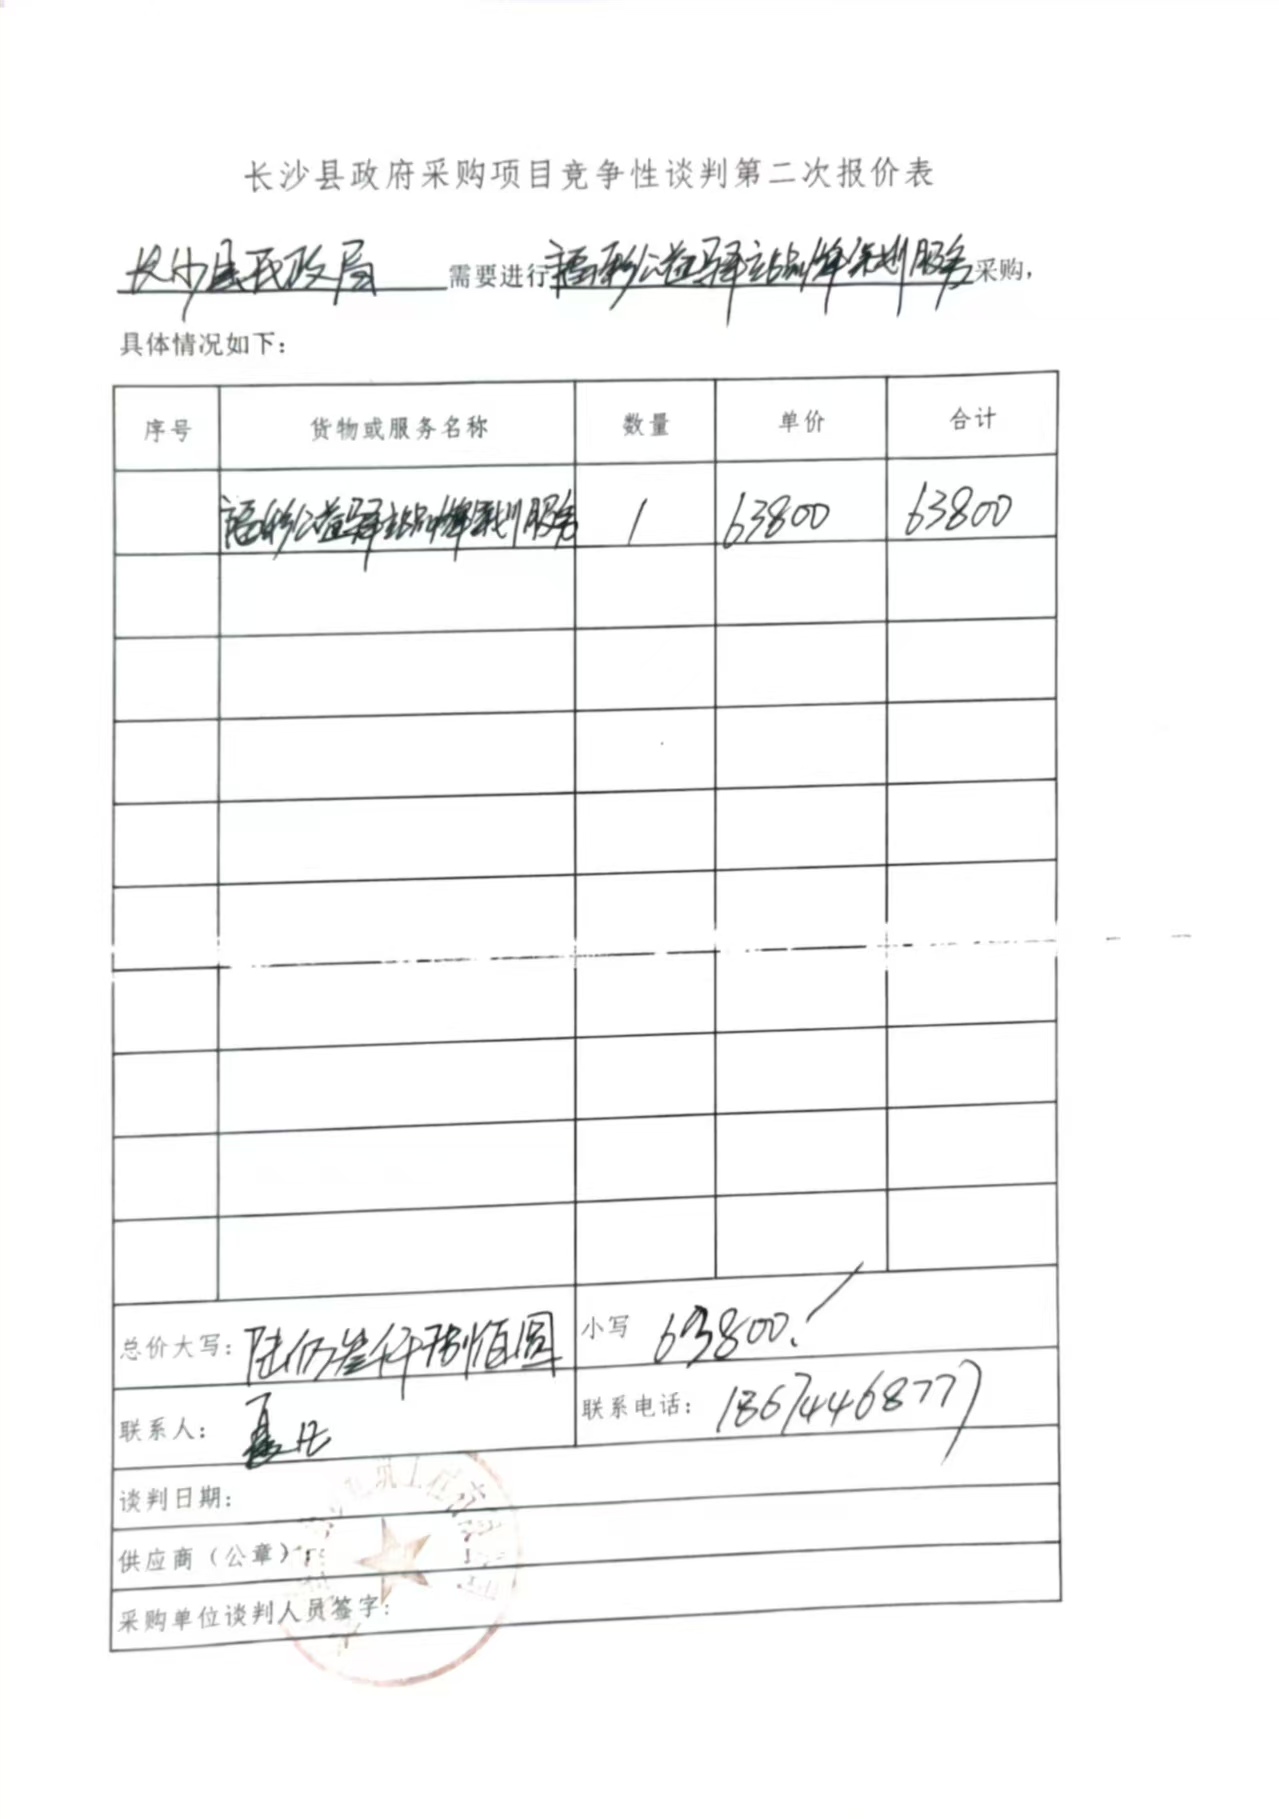 长沙县政府采购项目竞争性谈判第二次报价表
长沙县民政局 需要进行 福彩公益驿站品牌策划服务 采购，
具体情况如下：
序号 货物或服务名称 数量 单价 合计
福彩公益驿站品牌策划服务 1 63800 63800
总价大写： 陆仟叁仟捌佰圆 小写 63800.
联系人： 联系电话： 18674468777
谈判日期：
供应商（公章）：
采购单位谈判人员签字：